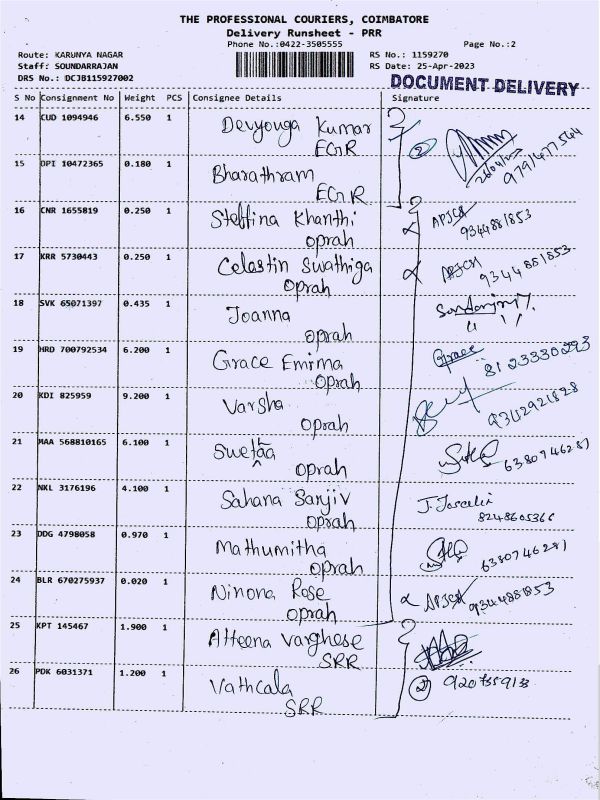 THE PROFESSIONAL COURIERS, COIMBATORE
Delivery Runsheet - PRR
Phone No.:0422-3505555 Page No.:2
Route: KARUNYA NAGAR RS No.: 1159270
Staff: SOUNDARRAJAN RS Date: 25-Apr-2023
DRS No.: DCJB115927002 DOCUMENT DELIVERY
S No Consignment No Weight PCS Consignee Details Signature
14 CUD 1094946 6.550 1 Devyouga Kumar
EGR 2
15 DPI 10472365 0.180 1 Bharathram
EGR
16 CNR 1655819 0.250 1 Steffina Khanthi
Oprah 9344881853
17 KRR 5730443 0.250 1 Celestin Swathiga
Oprah 9344881853
18 SVK 65071397 0.435 1 Joanna
Oprah
19 HRD 700792534 6.200 1 Grace Emima Grace
Oprah 8123330293
20 KDI 825959 9.200 1 Varsha
Oprah
21 MAA 568810165 6.100 1 Swetaa
Oprah 6380746281
22 NKL 3176196 4.100 1 Sahana Sanjiv
Oprah 8248605366
23 DDG 4798058 0.970 1 Mathumitha
Oprah 6380746281
24 BLR 670275937 0.020 1 Ninona Rose
Oprah 9344881853
25 KPT 145467 1.900 1 Atteena Varghese
SRR
26 PDK 6031371 1.200 1 Vathcala
SRR 2